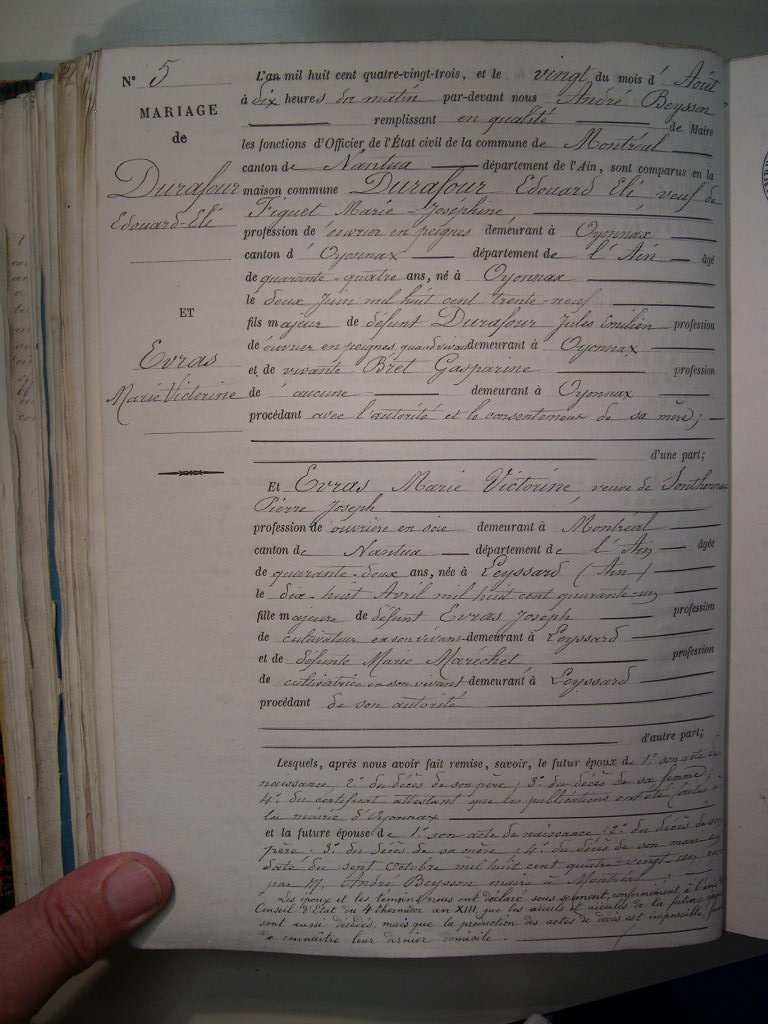 N° 5
MARIAGE
de
Durafour
Edouard Eli
ET
Evras
Marie Victorine
L'an mil huit cent quatre-vingt-trois, et le vingt du mois d' Août
à dix heures du matin par-devant nous André Beysson
remplissant en qualité de Maire
les fonctions d'Officier de l'État civil de la commune de Montréal
canton de Nantua département de l'Ain, sont comparus en la
maison commune Durafour Edouard Eli, veuf de
Fiquet Marie Joséphine
profession de ouvrier en peignes demeurant à Oyonnax
canton d' Oyonnax département de l'Ain âgé
de quarante-quatre ans, né à Oyonnax
le deux Juin mil huit cent trente-neuf
fils majeur de défunt Durafour Jules Emilien profession
de ouvrier en peignes quand vivait demeurant à Oyonnax
et de vivante Bret Gasparine profession
de aucune demeurant à Oyonnax
procédant avec l'autorité et le consentement de sa mère;
d'une part;
Et Evras Marie Victorine, veuve de
Pierre Joseph
profession de ouvrière en soie demeurant à Montréal
canton de Nantua département de l'Ain âgée
de quarante-deux ans, née à Leyssard (Ain)
le dix-huit Avril mil huit cent quarante-un
fille majeure de défunt Evras Joseph profession
de cultivateur en son vivant demeurant à Leyssard
et de défunte Marie Maréchet profession
de cultivatrice en son vivant demeurant à Leyssard
procédant de son autorité
d'autre part;
Lesquels, après nous avoir fait remise, savoir, le futur époux de 1° son acte de
naissance; 2° du décès de son père; 3° du décès de sa femme;
4° du certificat attestant que les publications ont été faites à
la mairie d'Oyonnax
et la future épouse de 1° son acte de naissance; 2° du décès de son
père; 3° du décès de sa mère; 4° du décès de son mari
daté du sept octobre mil huit cent quatre-vingt un
par M. André Beysson maire à Montréal
Les époux et les témoins nous ont déclaré sous serment, conformément à l'avis du
Conseil d'Etat du 4 thermidor an XIII, que les aïeuls et aïeules de la future
sont aussi décédés, mais que la production des actes de décès est impossible,
connaître leur dernier domicile.